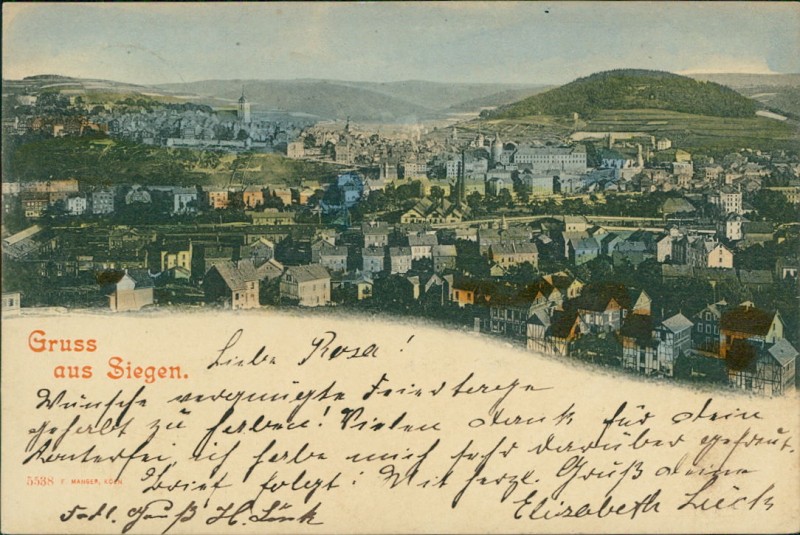 Gruss
aus Siegen.
Liebe Rosa!
Wünsche vergnügte Feiertage
gehabt zu haben! Vielen Dank für Dein
Konterfei, ich habe mich sehr darüber gefreut.
Brief folgt! Mit herzl. Gruß Deine
Elisabeth Lück
5538 F. MANGER, KÖLN
Gruß H. Lück